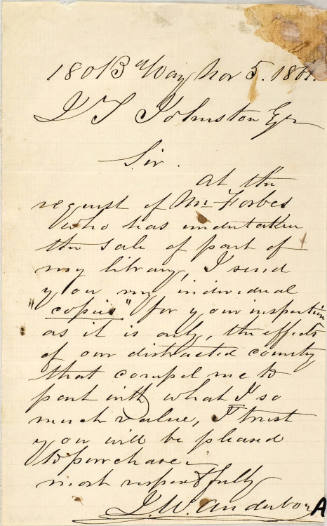 180 B Way Nov 5. 1861.
J T Johnston Esqr
Sir.
At the
request of Mr Forbes
who has undertaken
the sale of part of
my library, I send
you my individual
"copies" for your inspection
as it is only, the effects
of our distracted county
that compel me to
part with what I so
much value, I trust
you will be pleased
to purchase.
most respectfully
J. W.
A